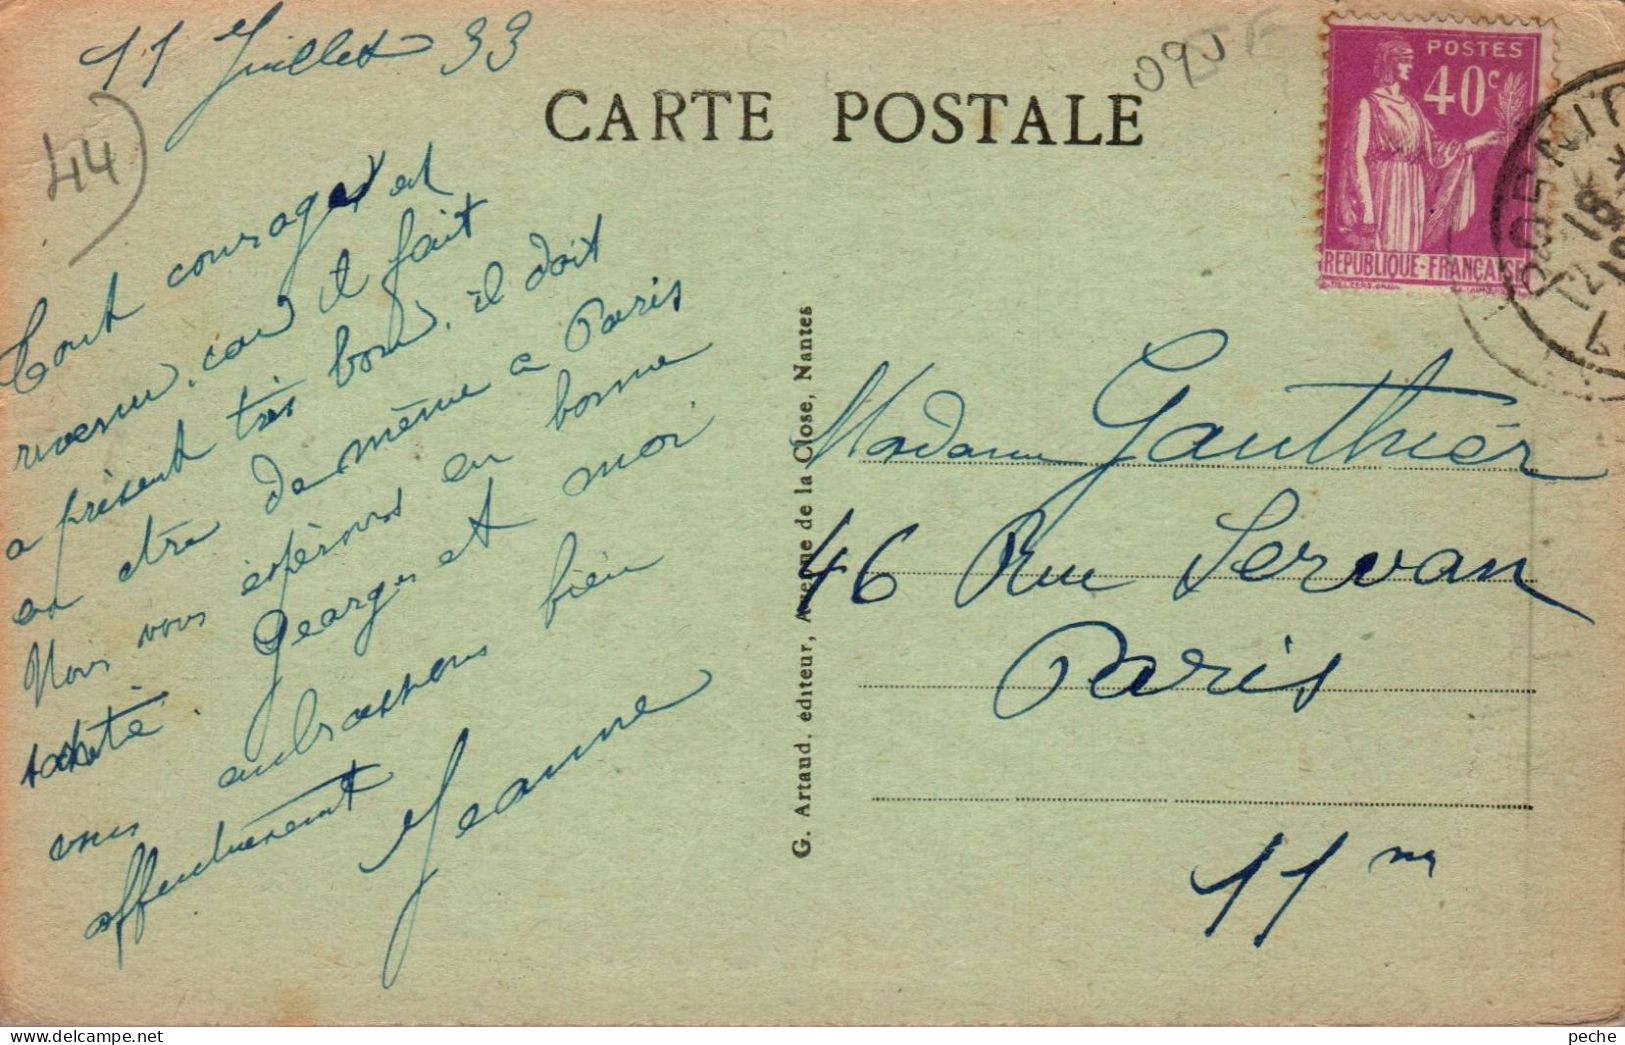 11 Juillet 33
44)
CARTE POSTALE
POSTES
40c
REPUBLIQUE-FRANÇAISE
Tout courage est
revenu, car il fait
a présent très bon, il doit
en être de même a Paris
Nous vous espérons en bonne
santé. Georges et moi
vous embrassons bien
affectueusement
Jeanne
G. Artaud, éditeur, Avenue de la Close, Nantes
Madame Gauthier
46 Rue Servan
Paris
11 me
peche
www.delcampe.net